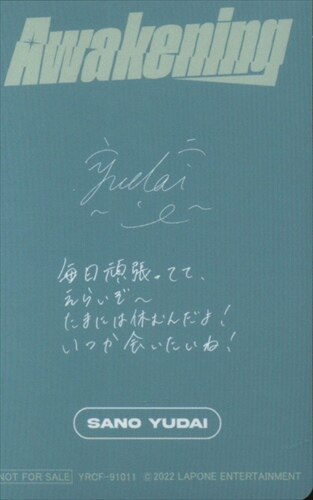 Awakening
Yudai
毎日頑張ってて、
えらいぞ〜
たまには休むんだよ！
いつか会いたいね！
SANO YUDAI
NOT FOR SALE YRCF-91011 ©2022 LAPONE ENTERTAINMENT